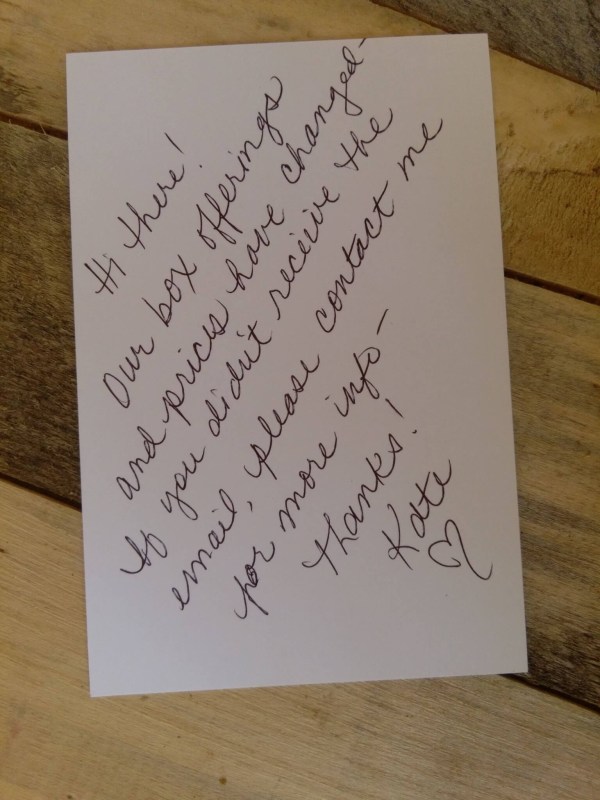 Hi there!
Our box offerings
and prices have changed-
If you didn't receive the
email, please contact me
for more info-
thanks!
Kate
♡